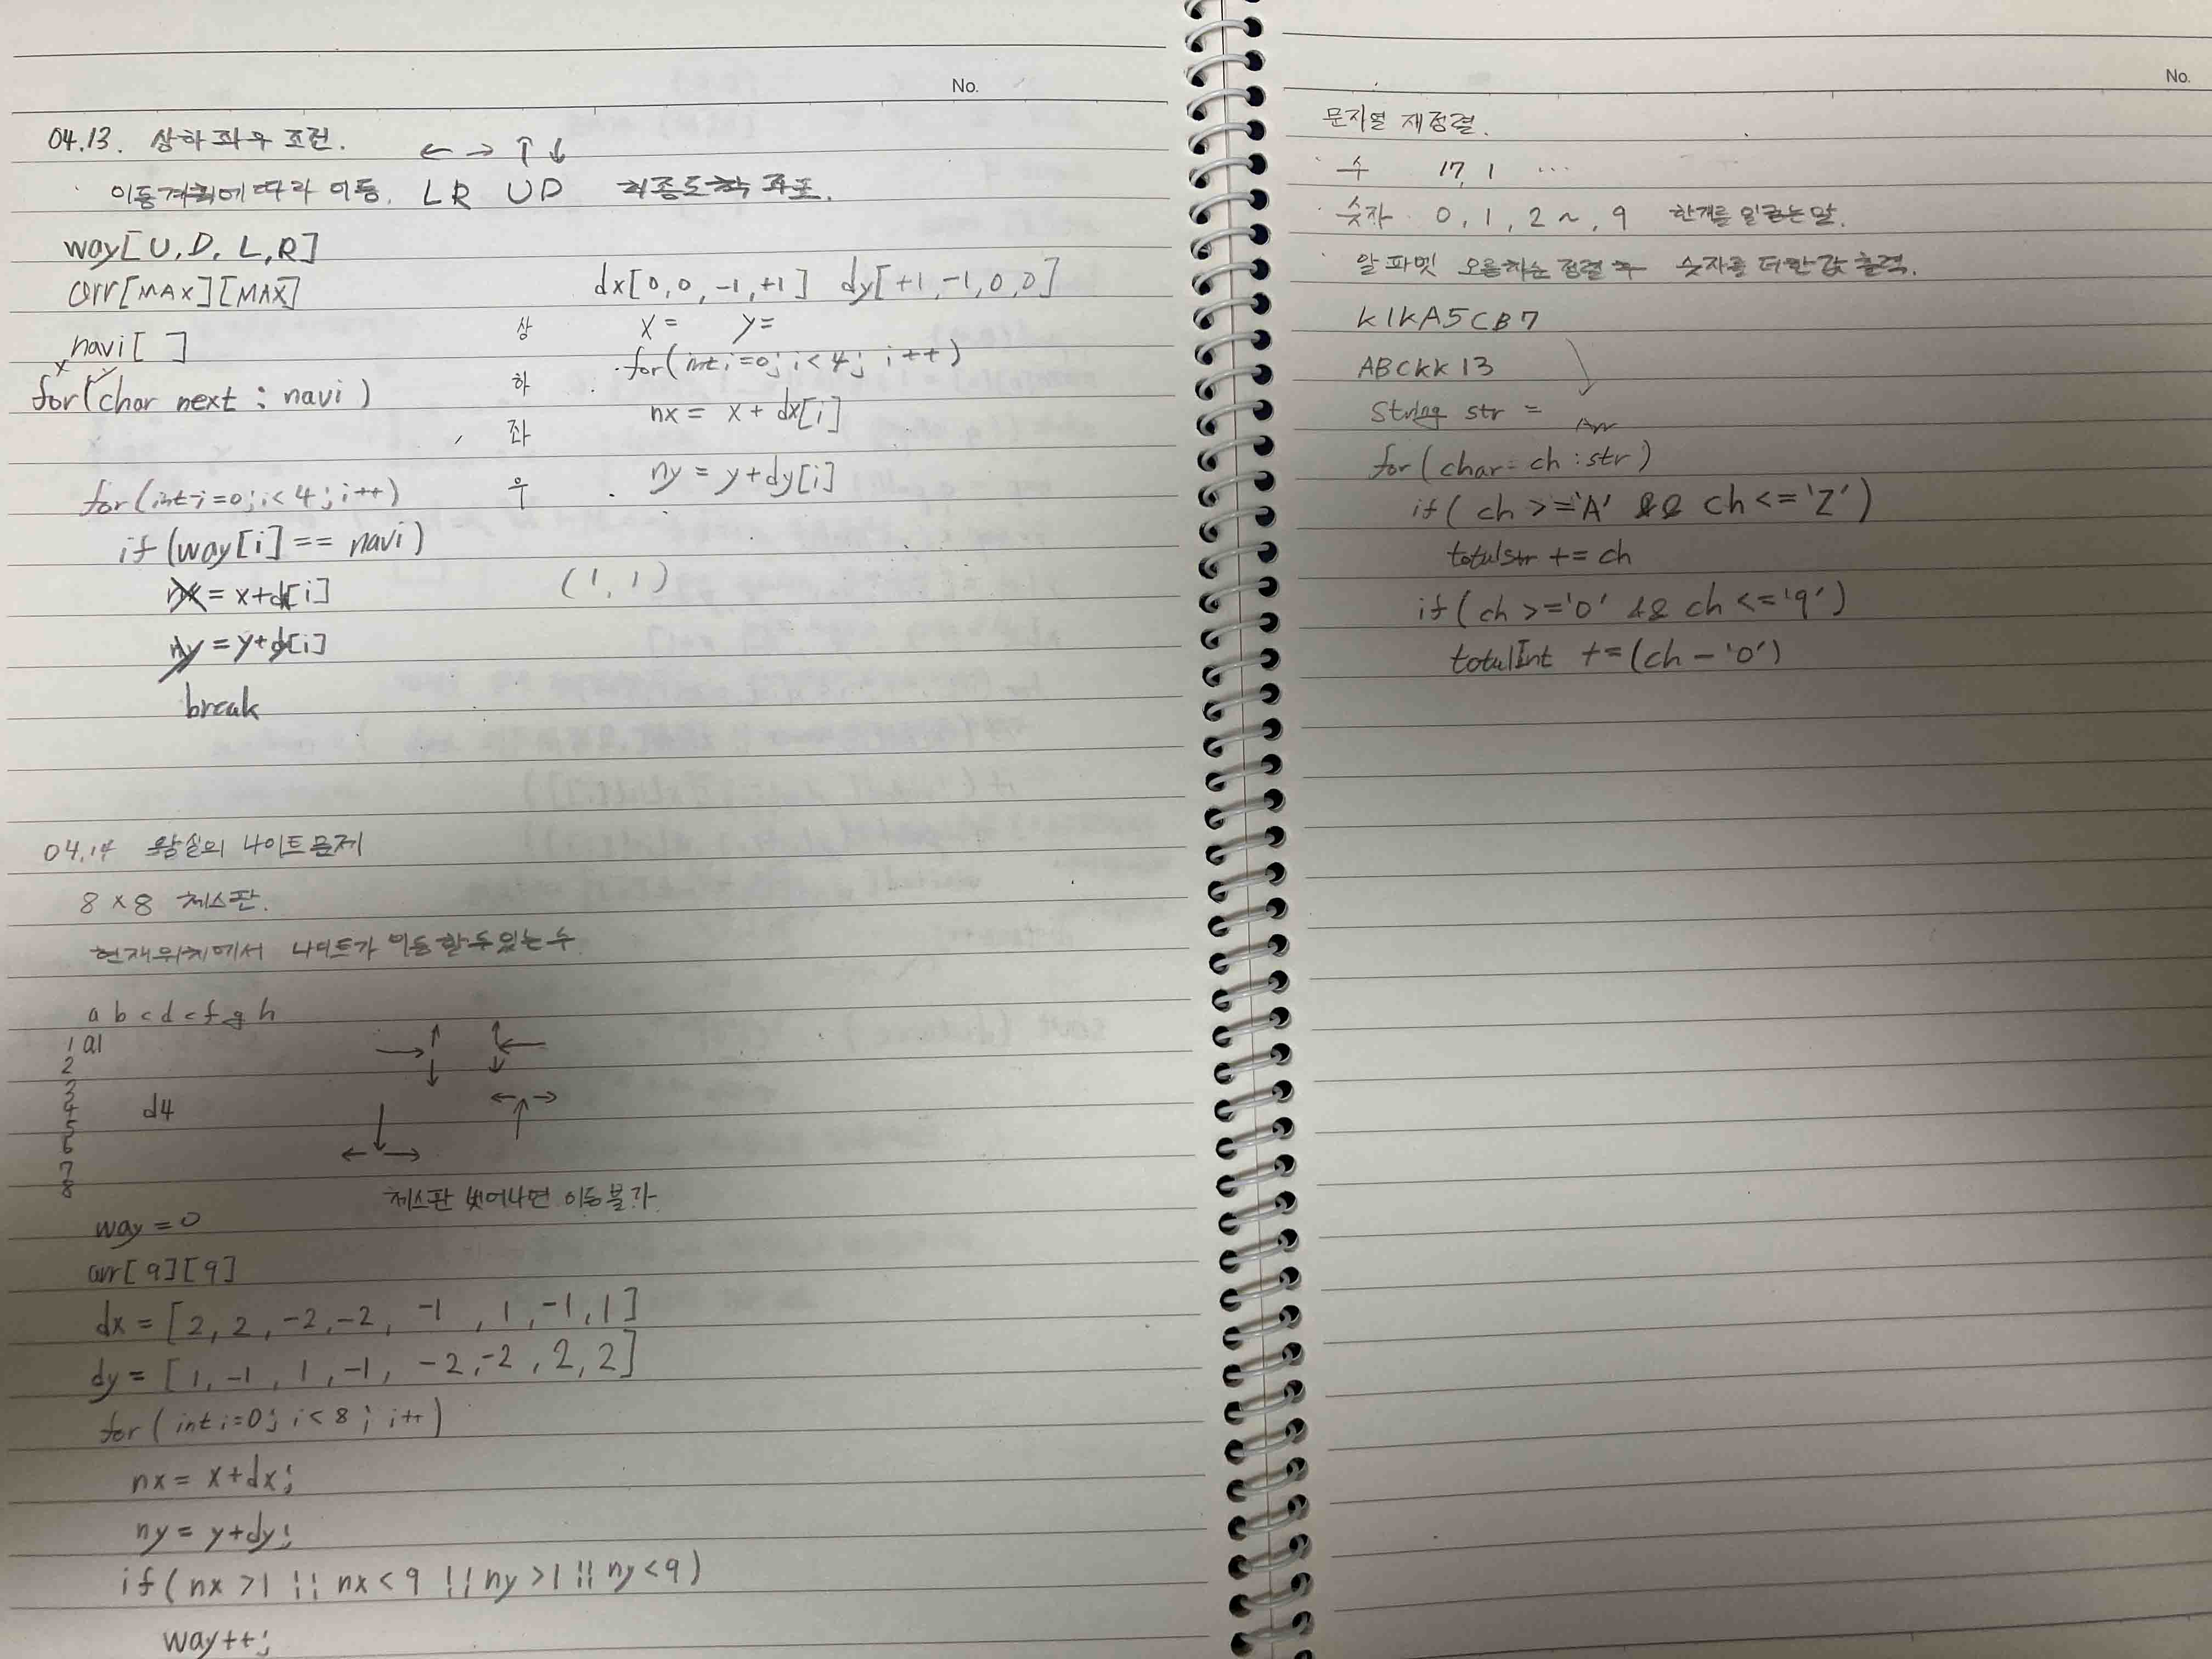 No.
04.13. 상하좌우 조건.
← → ↑ ↓
이동계획에 따라 이동. LR UD 최종도착 좌표.
way[U, D, L, R]
arr[MAX][MAX]
navi[ ]
for(char next : navi)
for(int i=0; i<4; i++)
if(way[i] == navi)
nx = x+dx[i]
ny = y+dy[i]
break
dx[0, 0, -1, +1] dy[+1, -1, 0, 0]
상
하
좌
우
x= y=
for(int i=0; i<4; i++)
nx = x + dx[i]
ny = y+dy[i]
(1, 1)
04.14 왕실의 나이트 문제
8 x 8 체스판.
현재위치에서 나이트가 이동할 수 있는 수
a b c d e f g h
1 a1
2
3
4 d4
5
6
7
8
체스판 벗어나면 이동불가
way = 0
arr[9][9]
dx = [2, 2, -2, -2, -1, 1, -1, 1]
dy = [1, -1, 1, -1, -2, -2, 2, 2]
for(int i=0; i<8; i++)
nx = x+dx;
ny = y+dy;
if(nx >1 || nx < 9 || ny >1 || ny <9)
way++;
No.
문자열 재정렬.
수 17, 1 ...
숫자 0, 1, 2 ~, 9 한개를 일컫는 말.
알파벳 오름차순 정렬 후 숫자를 더한 값 출력.
K1KA5CB7
ABCKK13
String str =
for(char= ch : str)
if( ch >='A' && ch <= 'Z')
totalstr += ch
if( ch >='0' && ch <='9')
totalInt += (ch - '0')